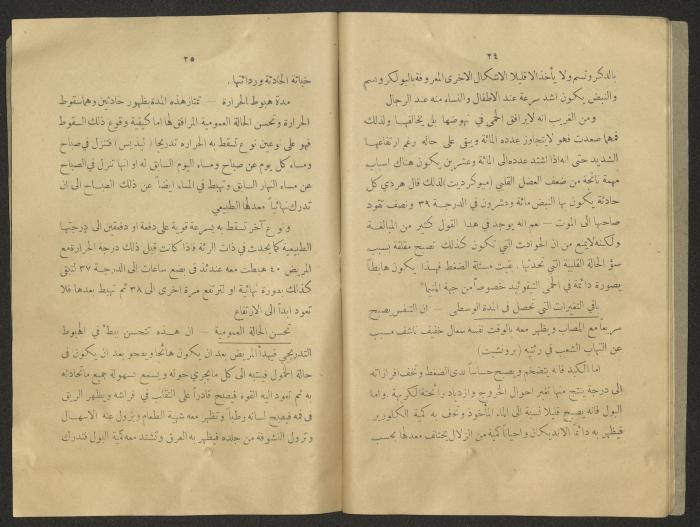 ٢٤
بالدكروتسم ولا يأخذ الا قليلا الاشكال الاخرى المعروفة بالبولكروتسم
والنبض يكون اشد سرعة عند الاطفال والنساء منه عند الرجال
ومن الغريب انه لا يرافق الحمى في نهوضها بل يخالفها ولذلك
فمهما صعدت فهو لا يتجاوز عدده المائة ويبقى على حاله رغم ارتفاعها
الشديد حتى انه اذا اشتد عدده الى المائة وعشرين يكون هناك اسباب
مهمة ناتجة من ضعف العضل القلبي (ميوكرديت) لذلك قال هردي كل
حادثة يكون بها النبض مائة وعشرون في الدرجة ٣٩ ونصف تقود
صاحبها الى الموت — نعم انه يوجد في هذا القول كثير من المبالغة
ولكنه لا يمنع من ان الحوادث التي تكون كذلك تصبح مقلقة بسبب
سؤ الحالة القلبية التي تحدثها. بقيت مسئلة الضغط فهذا يكون هابطاً
بصورة دائمة في الحمى التيفوئيد خصوصاً من جهة المنيما
باقي التغيرات التي تحصل في المدة الوسطى — ان التنفس يصبح
سريعاً مع المصاب ويظهر معه بالوقت نفسه سعال خفيف ناشف مسبب
عن التهاب الشعب في رئتيه (برونشيت)
اما الكبد فانه يتضخم ويصبح حساساً لدى الضغط وتخف افرازاته
الى درجة ينتج منها تغير احوال الخروج وازدياد رائحته الكريهة. واما
البول فانه يصبح قليلا نسبة الى الماء المأخوذ وتخف به كمية الكلورير
فيظهر به دائماً الانديكان واحياناً كمية من الزلال يختلف معدلها بحسب
٢٥
خباثة الحادثة وردائتها.
مدة هبوط الحرارة — تمتاز هذه المدة بظهور حادثين وهما سقوط
الحرارة وتحسن الحالة العمومية المرافق لها اما كيفية وقوع ذلك السقوط
فهو على نوعين نوع تسقط به الحراره تدريجا (ليذيس) فتنزل في صباح
ومساء كل يوم عن صباح ومساء اليوم السابق له او انها تنزل في الصباح
عن مساء النهار السابق وتهبط في المساء ايضاً عن ذلك الصباح الى ان
تدرك نهائياً معدلها الطبيعي
ونوع آخر تسقط به بسرعة قوية على دفعة او دفعتين الى درجتها
الطبيعية كما يحدث في ذات الرئة فاذا كانت قبل ذلك درجة الحرارة مع
المريض ٤٠ هبطت معه عندئذ في بضع ساعات الى الدرجة ٣٧ لتبقى
كذلك بدورة نهائية او لترتفع مرة اخرى الى ٣٨ ثم تهبط بعدها فلا
تعود ابداً الى الارتفاع
تحسن الحالة العمومية — ان هذه تتحسن ببطء في الهبوط
التدريجي فيهدأ المريض بعد ان يكون هائجاً ويصحو بعد ان يكون في
حالة الخمول فينتبه الى كل ما يجري حوله ويسمع بسهولة جميع ما تحادثه
به ثم تعود اليه القوه فيصبح قادراً على التقلب في فراشه ويظهر الريق
في فمه فيصبح لسانه رطباً وتظهر معه شهية الطعام ويزول عنه الاسهال
وتزول النشوفة من جلده فيظهر به العرق وتشتد معه كمية البول فتدرك